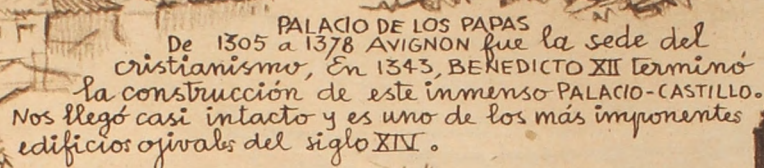 PALACIO DE LOS PAPAS
De 1305 a 1378 AVIGNON fue la sede del
cristianismo, En 1343, BENEDICTO XII terminó
la construcción de este inmenso PALACIO-CASTILLO.
Nos llegó casi intacto y es uno de los más imponentes
edificios ojivales del siglo XIV.